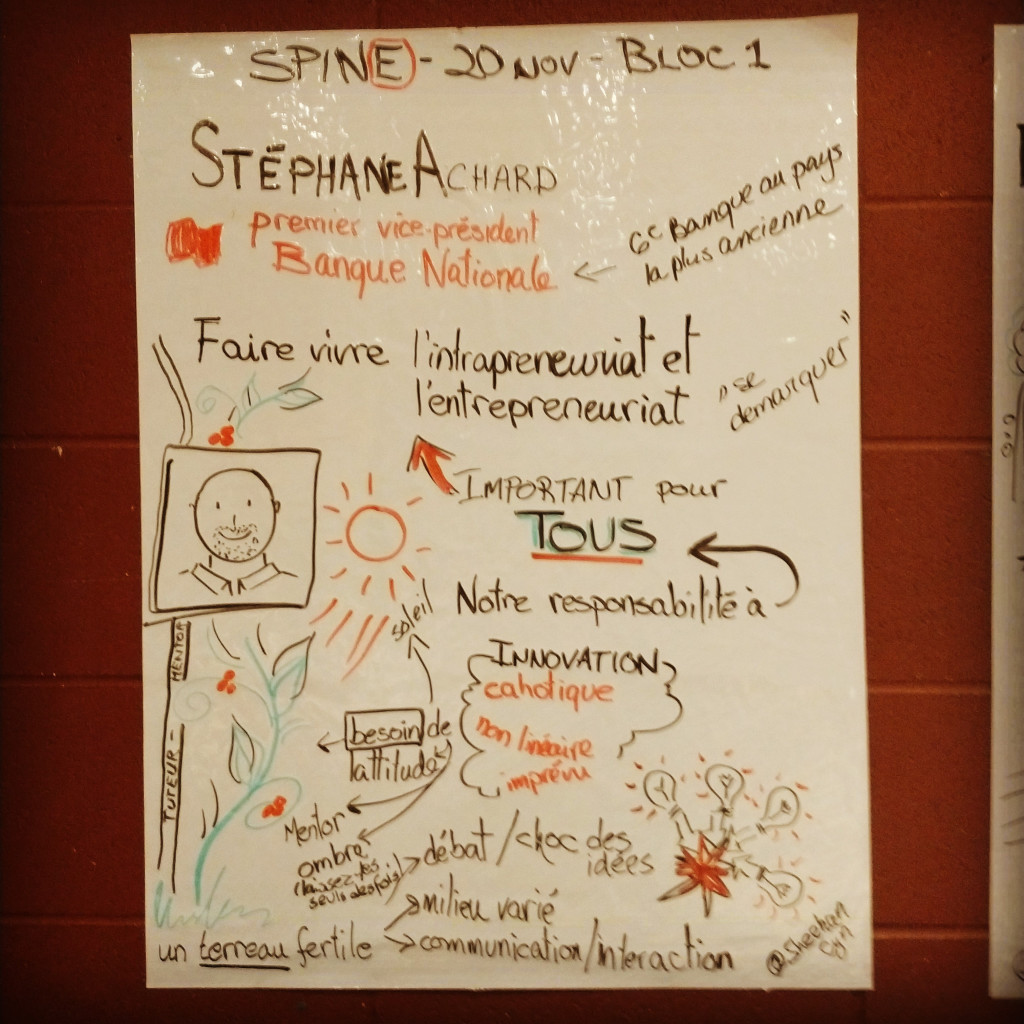 SPINE - 20 NOV - BLOC 1
STÉPHANE ACHARD
premier vice-président
Banque Nationale
6e Banque au pays
la plus ancienne
Faire vivre l'intrapreneuriat et
l'entrepreneuriat
"se
demarquer"
IMPORTANT pour
TOUS
Notre responsabilité à
soleil
MENTOR
TUTEUR -
INNOVATION
cahotique
non linéaire
imprévu
besoin de
lattitude
Mentor
ombre
(laissez-les
seuls des fois)
débat / choc des
idées
milieu varié
un terreau fertile
communication/interaction
@Sheehan